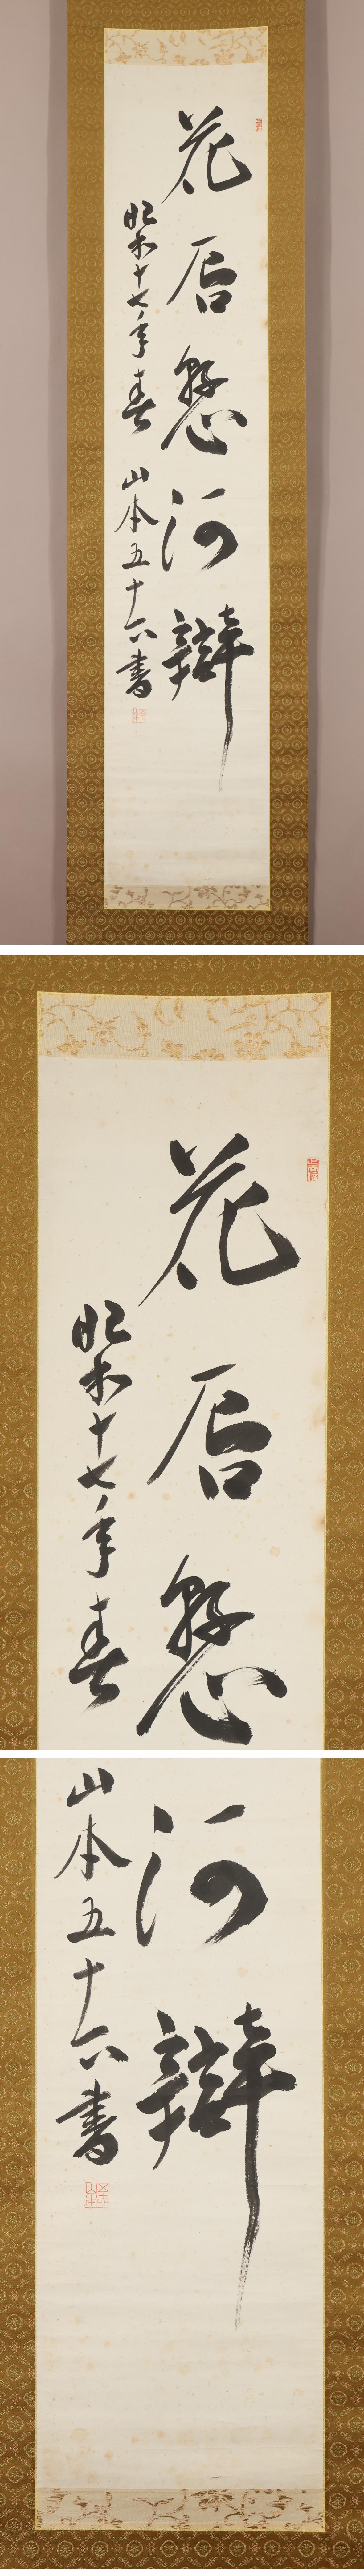 花后懸河辯
昭和十七年春 山本五十六書
花后懸
昭和十七年春
河辯
山本五十六書